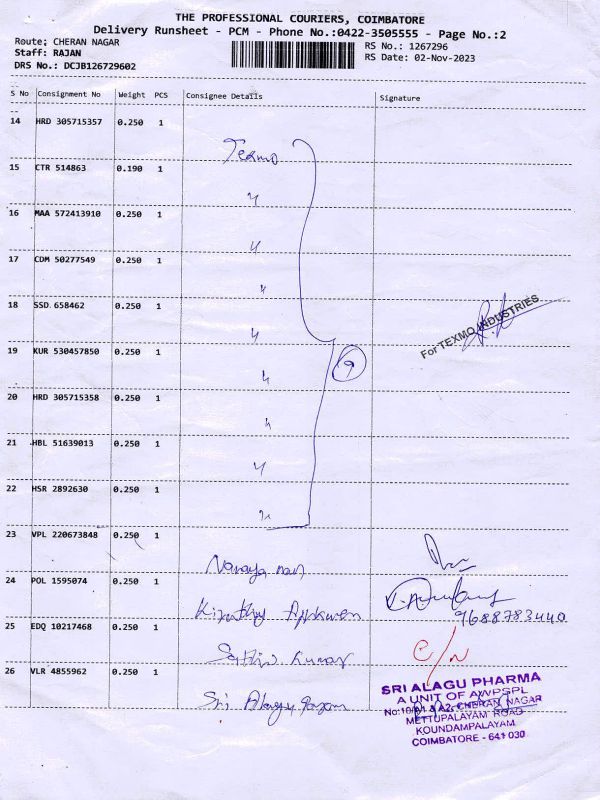 THE PROFESSIONAL COURIERS, COIMBATORE
Delivery Runsheet - PCM - Phone No.:0422-3505555 - Page No.:2
Route: CHERAN NAGAR
Staff: RAJAN
DRS No.: DCJB126729602
RS No.: 1267296
RS Date: 02-Nov-2023
S No Consignment No Weight PCS Consignee Details Signature
14 HRD 305715357 0.250 1 Texmo
15 CTR 514863 0.190 1 "
16 MAA 572413910 0.250 1 "
17 CDM 50277549 0.250 1 "
18 SSD 658462 0.250 1 "
For TEXMO INDUSTRIES
19 KUR 530457850 0.250 1 "
9
20 HRD 305715358 0.250 1 "
21 HBL 51639013 0.250 1 "
22 HSR 2892630 0.250 1 "
23 VPL 220673848 0.250 1 Narayanan
24 POL 1595074 0.250 1
9688783440
25 EDQ 10217468 0.250 1 Kumar
26 VLR 4855962 0.250 1 Sri Alagu
SRI ALAGU PHARMA
A UNIT OF AWPSPL
CHERAN NAGAR
METTUPALAYAM ROAD
KOUNDAMPALAYAM
COIMBATORE - 641 030